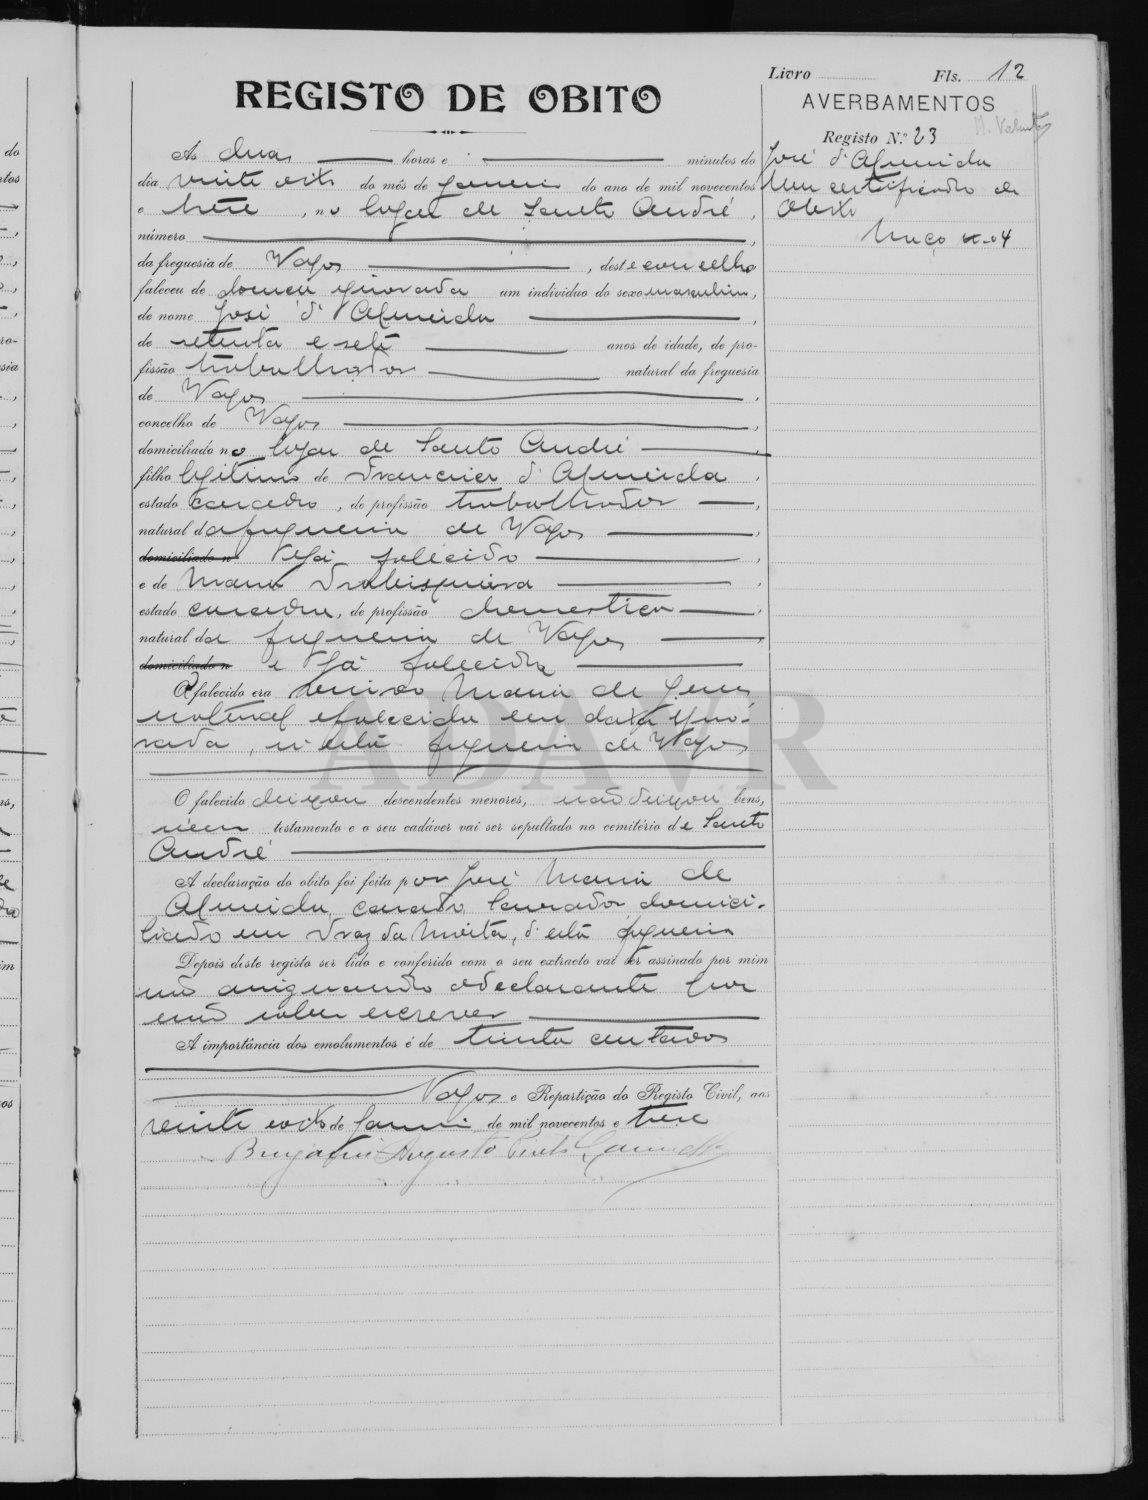 Livro Fls. 12
REGISTO DE OBITO
AVERBAMENTOS
Registo N.º 23
José d'Almeida
Um certificado de
Obito
As duas horas e minutos do
dia vinte oito do mês de Janeiro do ano de mil novecentos
e treze, no logar de Santo André,
número
da freguesia de Vagos, deste concelho
faleceu de doença ignorada um indivíduo do sexo masculino,
de nome José d'Almeida
de setenta e sete anos de idade, de pro-
fissão trabalhador natural da freguesia
de Vagos,
concelho de Vagos,
domiciliado no logar de Santo André
filho legitimo de Francisco d'Almeida,
estado casado, de profissão trabalhador,
natural da freguesia de Vagos,
domiciliado n já falecido,
e de Maria,
estado casada, de profissão domestica,
natural da freguesia de Vagos,
domiciliado n e já falecida
O falecido era viuvo Maria de Jesus
natural e falecida em data igno-
rada, n'esta freguesia de Vagos
ADAVR
O falecido deixou descendentes menores, não deixou bens,
nem testamento e o seu cadáver vai ser sepultado no cemitério de Santo
André
A declaração do obito foi feita por José Maria de
Almeida, casado, lavrador domici-
liado em Vraz da Moita, d'esta freguesia
Depois deste registo ser lido e conferido com o seu extracto vai ser assinado por mim
não assignando o declarante por
não saber escrever
A importância dos emolumentos é de trinta centavos
Vagos e Repartição do Registo Civil, aos
vinte oito de Janeiro de mil novecentos e treze
Augusto